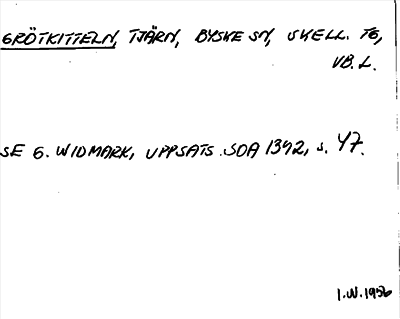 GRÖTKITTELN, TJÄRN, BYSKE SN, SKELL. TG,
VB. L.
SE G. WIDMARK, UPPSATS SOA 1392, s. 47.
I.W. 1956